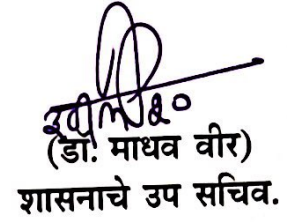 (डॉ. माधव वीर)
शासनाचे उप सचिव.